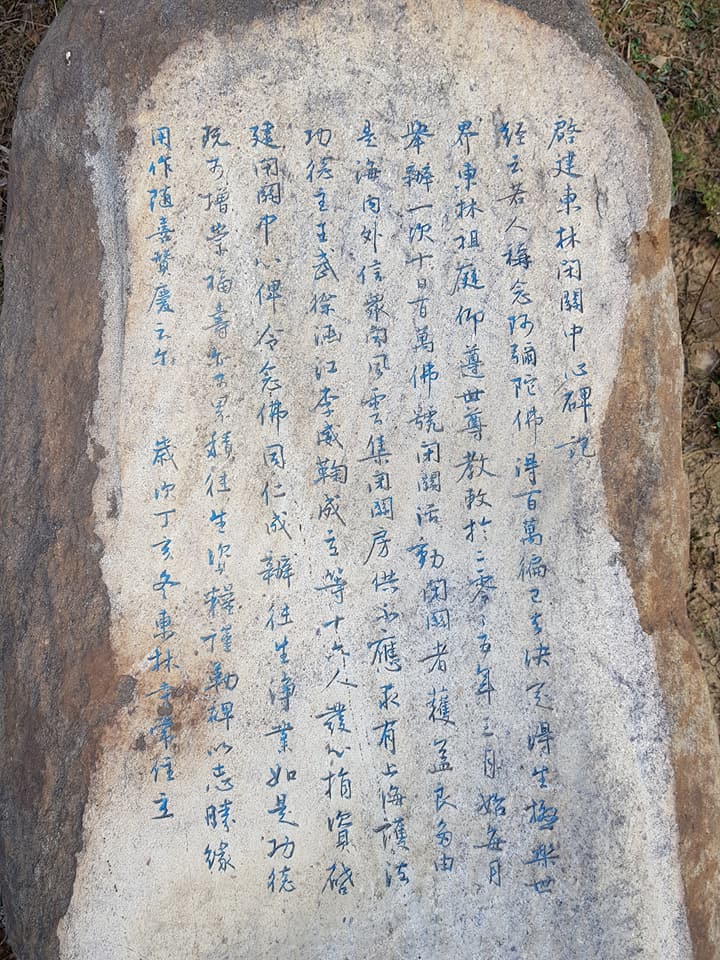 啓建東林閉關中心碑記
經云若人稱念阿彌陀佛得百萬徧已去決定得生極樂世
界東林祖庭仰遵世尊教敕於二零零五年三月始每月
舉辦一次十日百萬佛號閉關活動閉關者獲益良多由
是海內外信眾聞風雲集閉關房供不應求有上海護法
功德主王武徐涵江李威鞠成立等十六人發心捐資啓
建閉關中心俾令念佛同仁成辦往生淨業如是功德
現前增榮福壽 累積往生資糧謹勒碑以志勝緣
用作隨喜贊慶云尔 歲次丁亥冬東林寺常住立